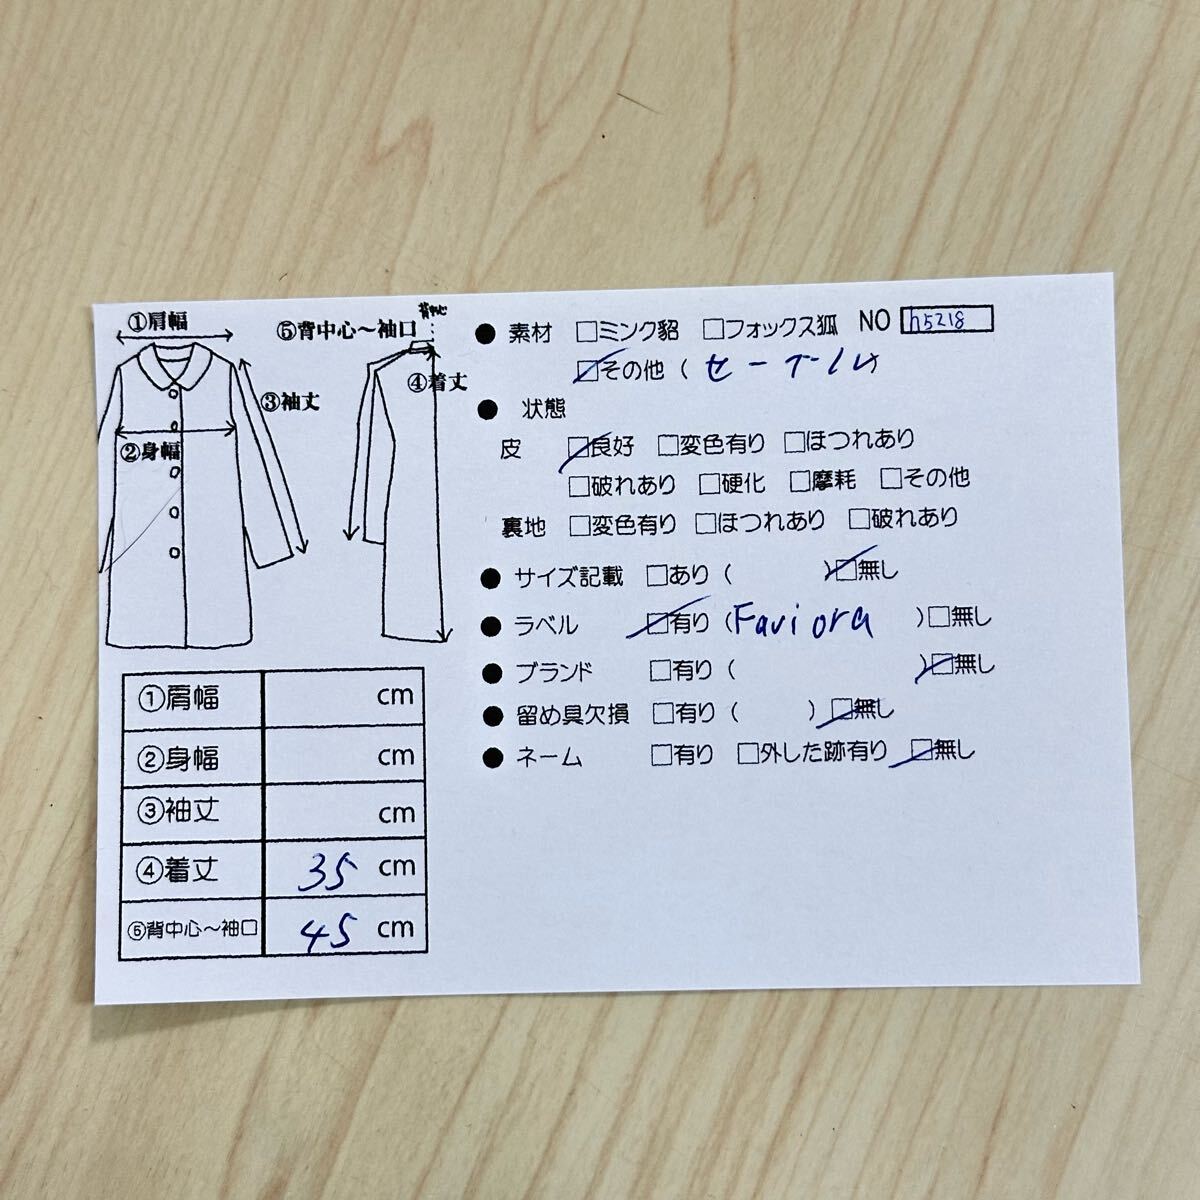 ①肩幅
⑤背中心〜袖口
背中心
④着丈
③袖丈
②身幅
● 素材 □ミンク貂 □フォックス狐 NO h5218
☑その他 ( セーブル)
● 状態
皮 ☑良好 □変色有り □ほつれあり
□破れあり □硬化 □摩耗 □その他
裏地 □変色有り □ほつれあり □破れあり
● サイズ記載 □あり ( ) ☑無し
● ラベル ☑有り (Faviora ) □無し
● ブランド □有り ( ) ☑無し
● 留め具欠損 □有り ( ) ☑無し
● ネーム □有り □外した跡有り ☑無し
①肩幅 cm
②身幅 cm
③袖丈 cm
④着丈 35 cm
⑤背中心〜袖口 45 cm